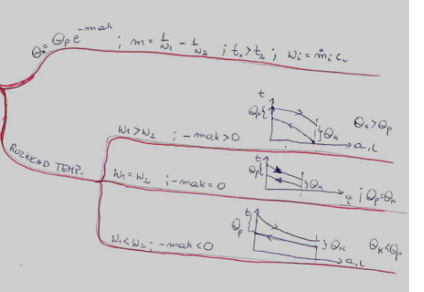 Θk = Θp e^-mak ; m = 1/W1 - 1/W2 ; t1 > t2 ; Wi = ṁi ci
ROZKŁAD TEMP.
W1 > W2 ; -mak > 0
t
Θp
Θk
a, L
Θk > Θp
W1 = W2 ; -mak = 0
t
Θk
a
; Θp = Θk
W1 < W2 ; -mak < 0
t
Θp
Θk
a, L
Θk < Θp